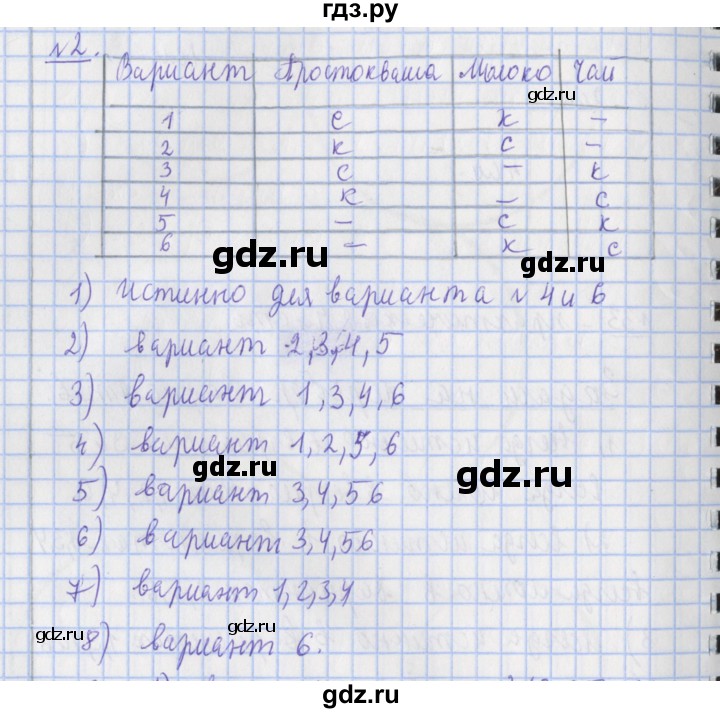 гдз.ру
№2.
Вариант Простокваша Молоко Чай
1 с к –
2 к с –
3 с – к
4 к – с
5 – с к
6 – к с
gdz.ru gdz.ru
1) Истинно для варианта №4 и 6
2) вариант 2,3,4,5
gdz.ru
3) вариант 1,3,4,6
4) вариант 1,2,5,6
gdz.ru gdz.ru
5) вариант 3,4,56
6) вариант 3,4,56
gdz.ru
7) вариант 1,2,3,4
gdz.ru gdz.ru
8) вариант 6.
gdz.ru